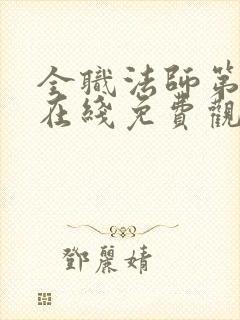 全職法師第
在綫免費觀
鄧麗婧